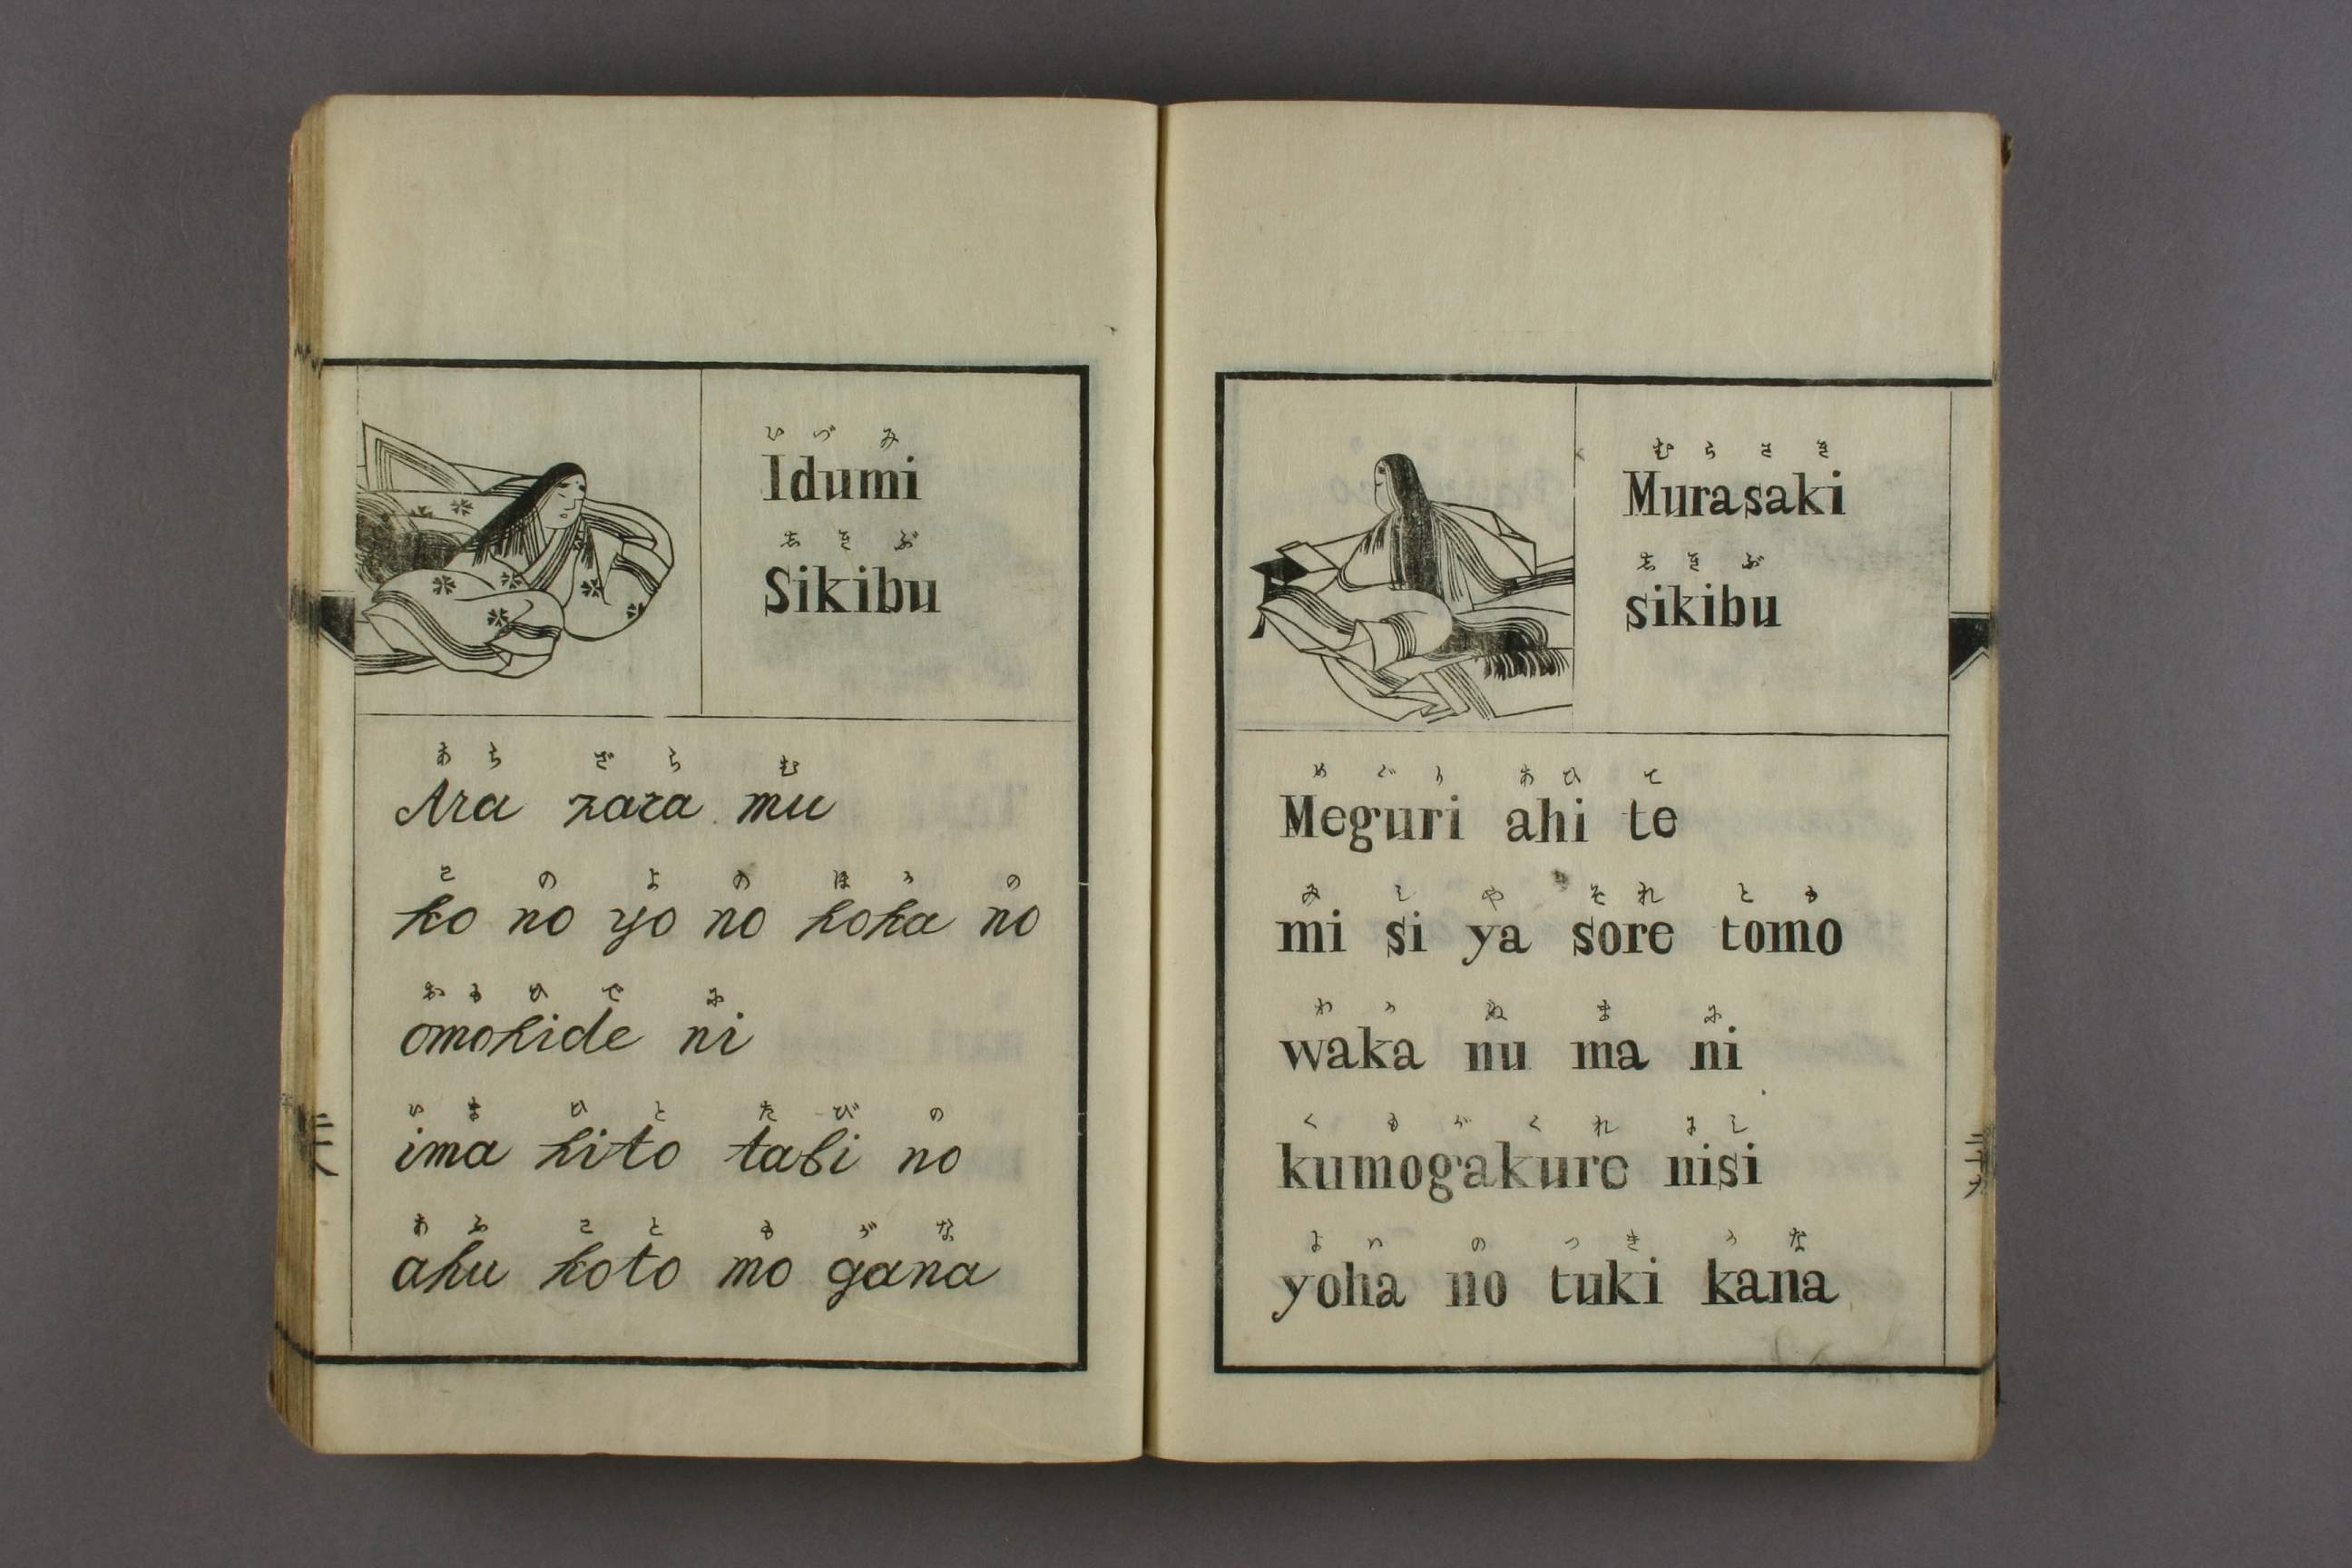 いづみ
Idumi
志きぶ
Sikibu
あらざらむ
Ara zara mu
このよのほかの
ko no yo no hoka no
おもひでに
omohide ni
いまひとたびの
ima hito tabi no
あふこともがな
ahu koto mo gana
むらさき
Murasaki
志きぶ
sikibu
めぐりあひて
Meguri ahi te
みしやそれとも
mi si ya sore tomo
わかぬまに
waka nu ma ni
くもがくれにし
kumogakure nisi
よはのつきかな
yoha no tuki kana